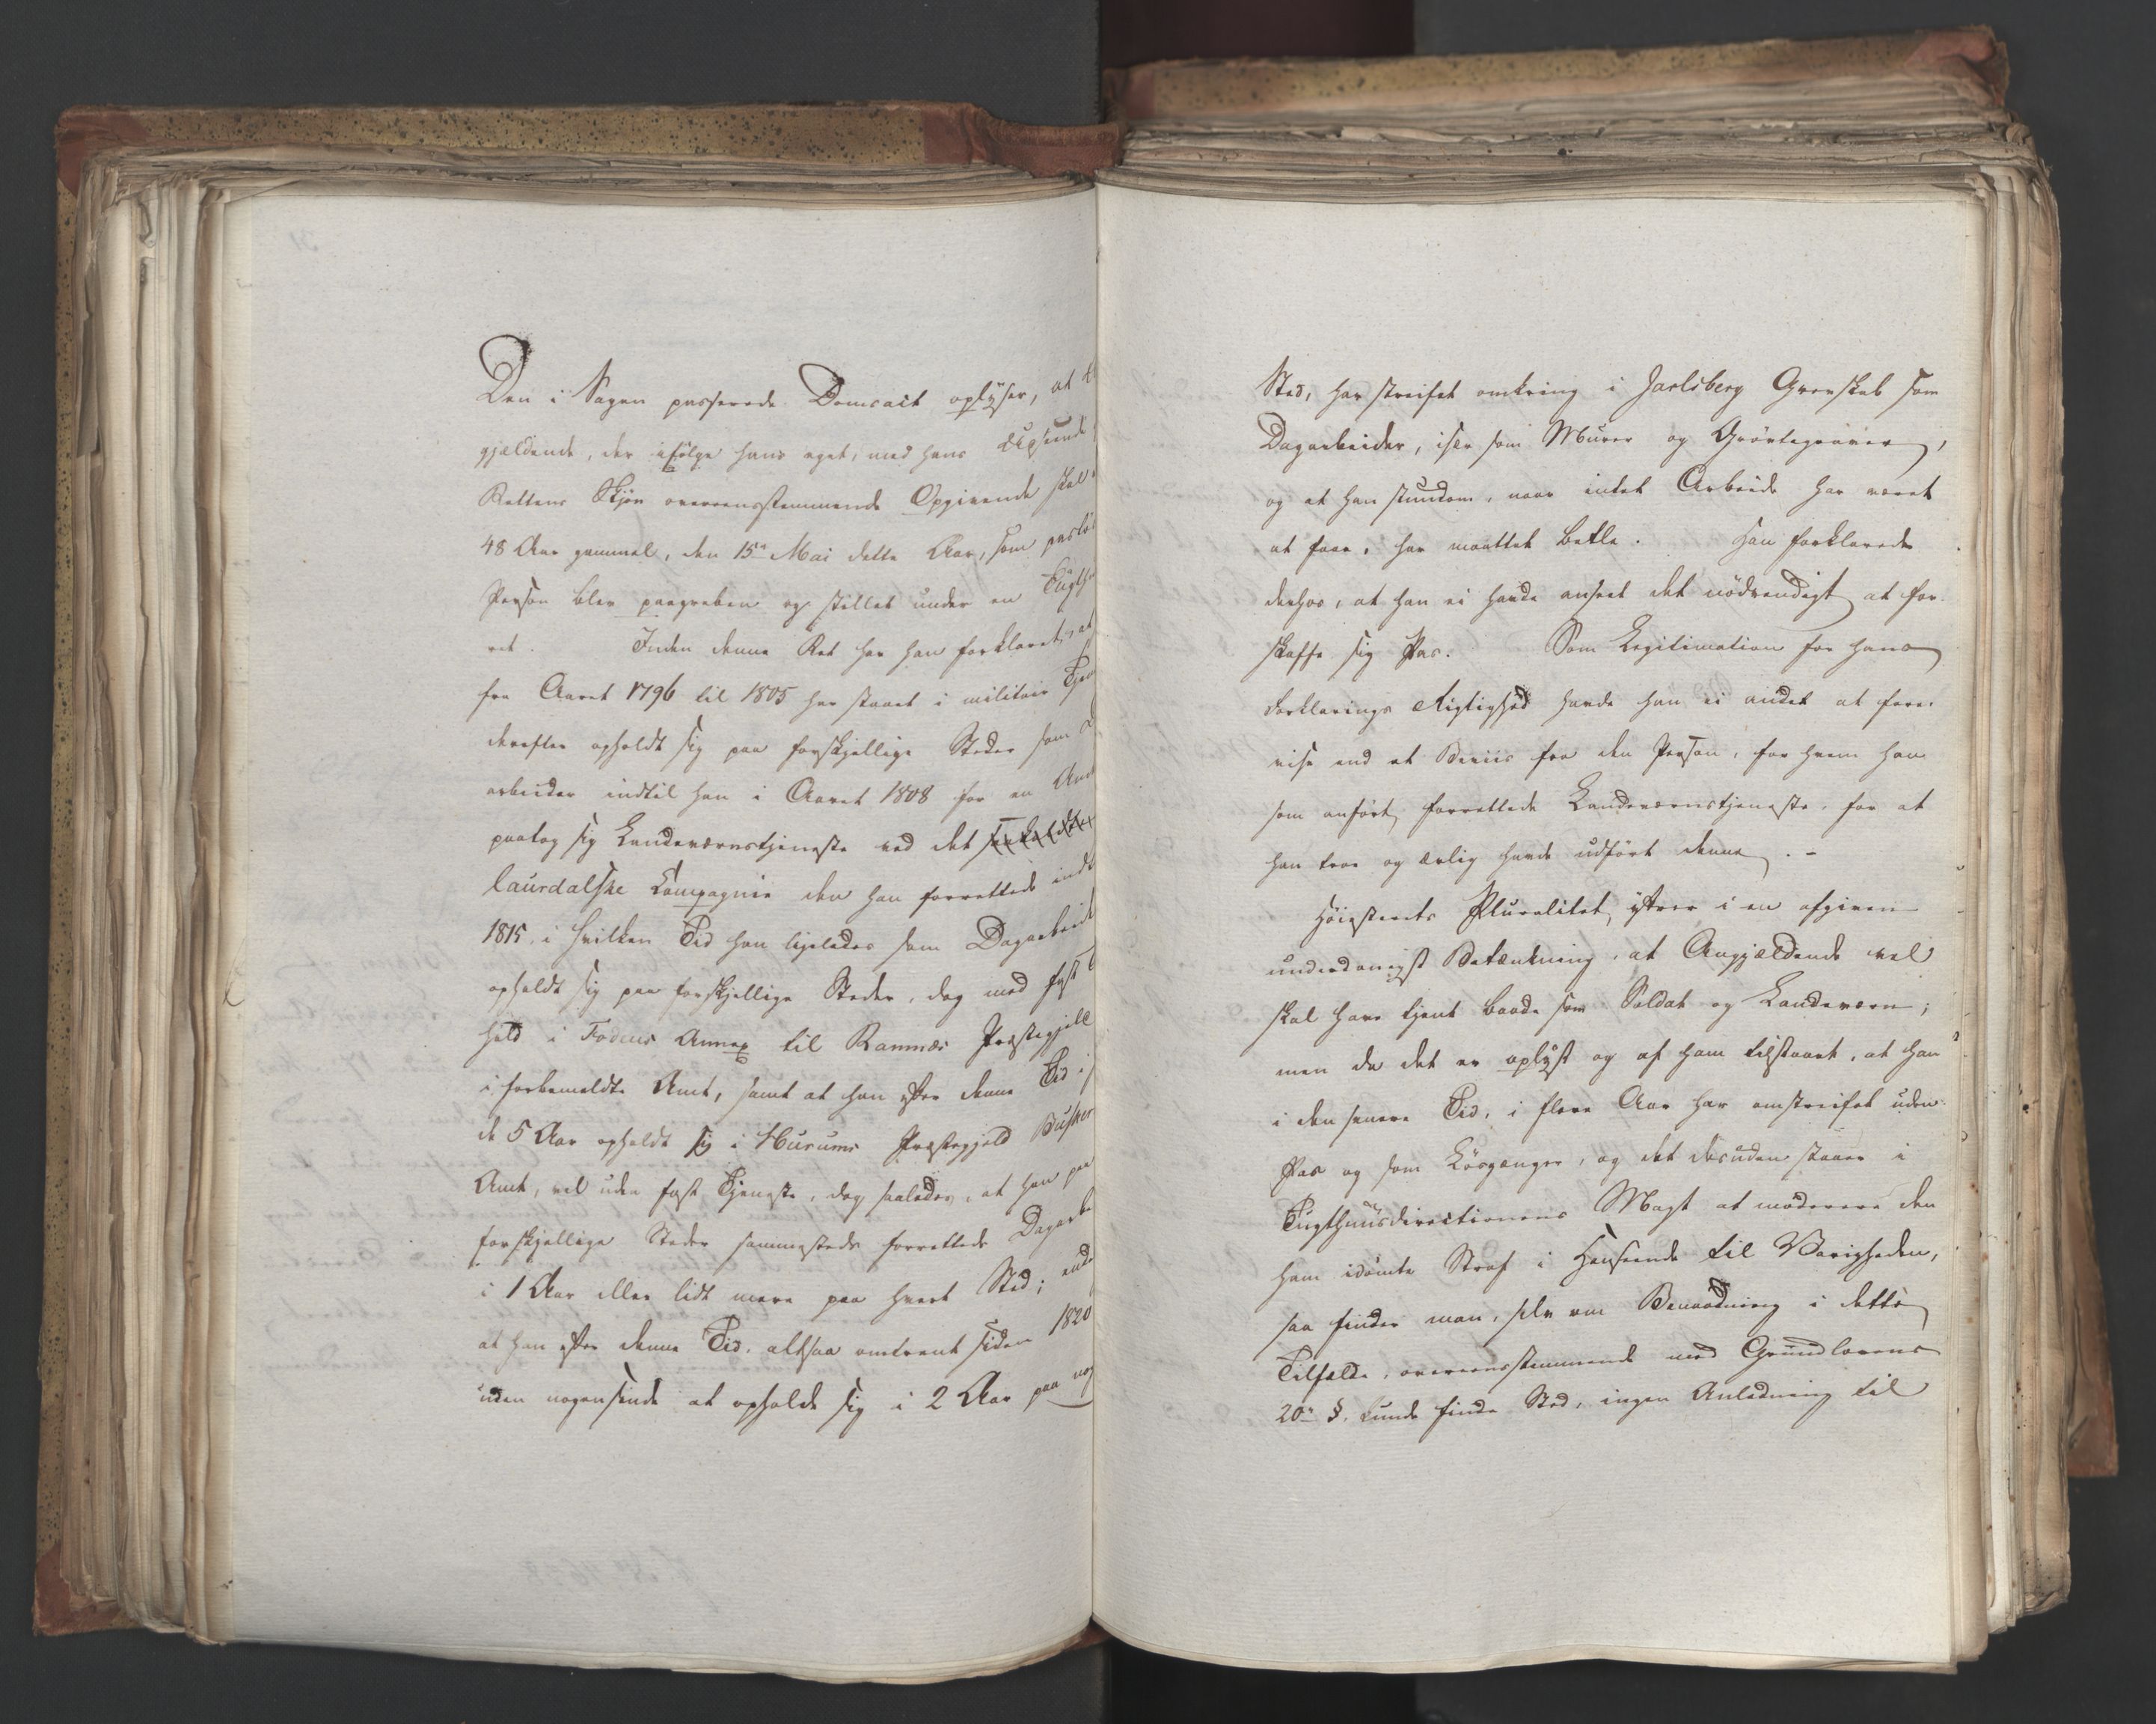 Den i Sagen passerede Domsact oplyser, at
gjældende, der ifølge hans eget, med hans Udseende
Rettens Skjøn overeensstemmende Opgivende skal
48 Aar gammel, den 15de Mai dette Aar, som pasløs
Person blev paagreben og stillet under en Tugth
ret. Inden denne Ret har han forklaret, at
fra Aaret 1796 til 1805 har staaet i militair Tjen
derefter opholdt sig paa forskjellige Steder som
arbeider indtil han i Aaret 1808 for en And
paatog sig Landeværnstjeneste ved det
laurdalske Compagnie den han forrettede indt
1815, i hvilken Tid han ligeledes som Dagarbeid
opholdt sig paa forskjellige Steder, dog med fast
hold i Fodens Annex til Ramnæs Præstegjeld
i forbemeldte Amt, samt at han efter denne Tid i
de 5 Aar opholdt sig i Hurums Præstegjeld Busker
Amt, vel uden fast Tjeneste, dog saaledes, at han paa
forskjellige Steder sammesteds forrettede Dagarbe
i 1 Aar eller lidt mere paa hvert Sted; endv
at han efter denne Tid, altsaa omtrent siden 1820
uden nogensinde at opholde sig i 2 Aar paa no
Sted, har streifet omkring i Jarlsberg Grevskab som
Dagarbeider, især som Murer og Grøvtegraver,
og at han stundom, naar intet Arbeide har været
at faae, har maattet betle. Han forklarede
derhos, at han ei havde anseet det nødvendigt at for
skaffe sig Pas. Som Legitimation for hans
Forklarings Rigtighed havde han ei andet at fore
vise end et Beviis fra den Person, for hvem han
som anført forrettede Landeværnstjeneste, for at
han troe og ærlig havde udført denne. –
Høiesterets Pluralitet yttrer i en afgiven
underdanigst Betænkning, at Angjældende vel
skal have tjent baade som Soldat og Landeværn;
men da det er oplyst og af ham tilstaaet, at han
i den senere Tid, i flere Aar har omstreifet uden
Pas og som Løsgænger, og det desuden staaer i
Tugthuusdirectionens Magt at moderere den
ham idømte Straf i Henseende til Varigheden,
saa finder man, selv om Benaadning i dette
Tilfælde, overeensstemmende med Grundlovens
20de §, kunde finde Sted, ingen Anledning til